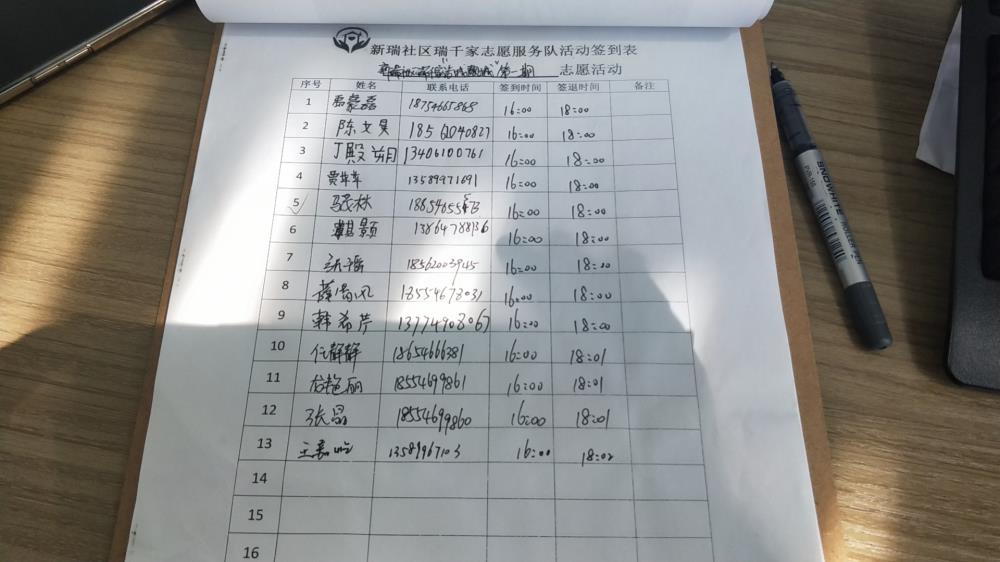 新瑞社区瑞千家志愿服务队活动签到表
第一期 志愿活动
序号 姓名 联系电话 签到时间 签退时间 备注
1 禹蒙磊 18754665868 16:00 18:00
2 陈文昊 18561040827 16:00 18:00
3 丁殿朔 13406100761 16:00 18:00
4 贾苹苹 13589971691 16:00 18:00
5 张林 16:00 18:00
6 13864788136 16:00 18:00
7 18562003945 16:00 18:00
8 薛尚风 18554678031 16:00 18:00
9 韩希芹 13774908067 16:00 18:00
10 任静静 18654666381 16:00 18:01
11 艳丽 18554699861 16:00 18:01
12 张晶 18554699860 16:00 18:01
13 王嘉 13589967103 16:00 18:02
14
15
16
SNOWHITE ROLLER PEN